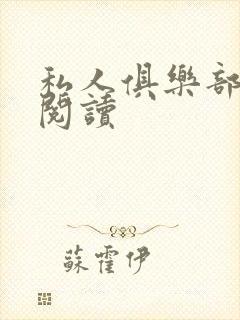 私人俱樂部
閱讀
蘇霍伊